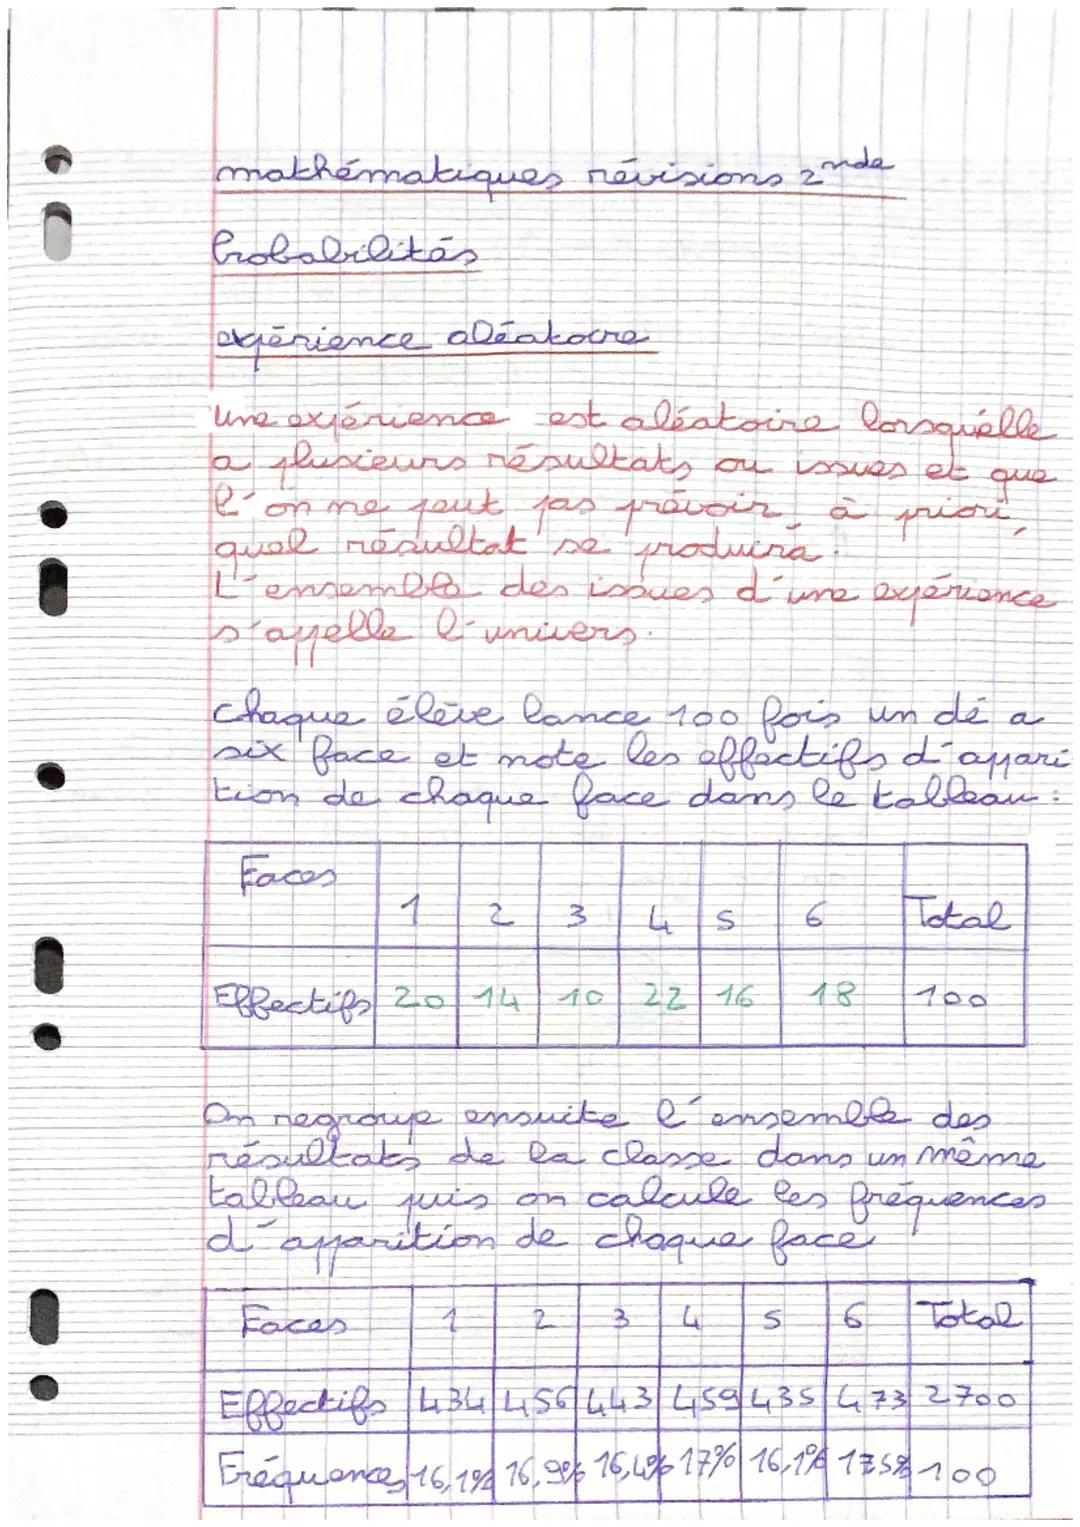 mathématiques révisions 2nde
Probabilités
expérience aléatoire
Une expérience est aléatoire lorsqu'elle
a plusieurs résultats ou issues et que
l'on ne peut pas prévoir, à priori,
quel résultat se produira.
L'ensemble des issues d'une expérience
s'appelle l'univers.
Chaque élève lance 100 fois un dé a
six face et note les effectifs d'appari
tion de chaque face dans le tableau :
Faces 1 2 3 4 5 6 Total
Effectifs 20 14 10 22 16 18 100
On regroupe ensuite l'ensemble des
résultats de la classe dans un même
tableau puis on calcule les fréquences
d'apparition de chaque face
Faces 1 2 3 4 5 6 Total
Effectifs 434 456 443 459 435 473 2700
Fréquences 16,1% 16,9% 16,4% 17% 16,1% 17,5% 100